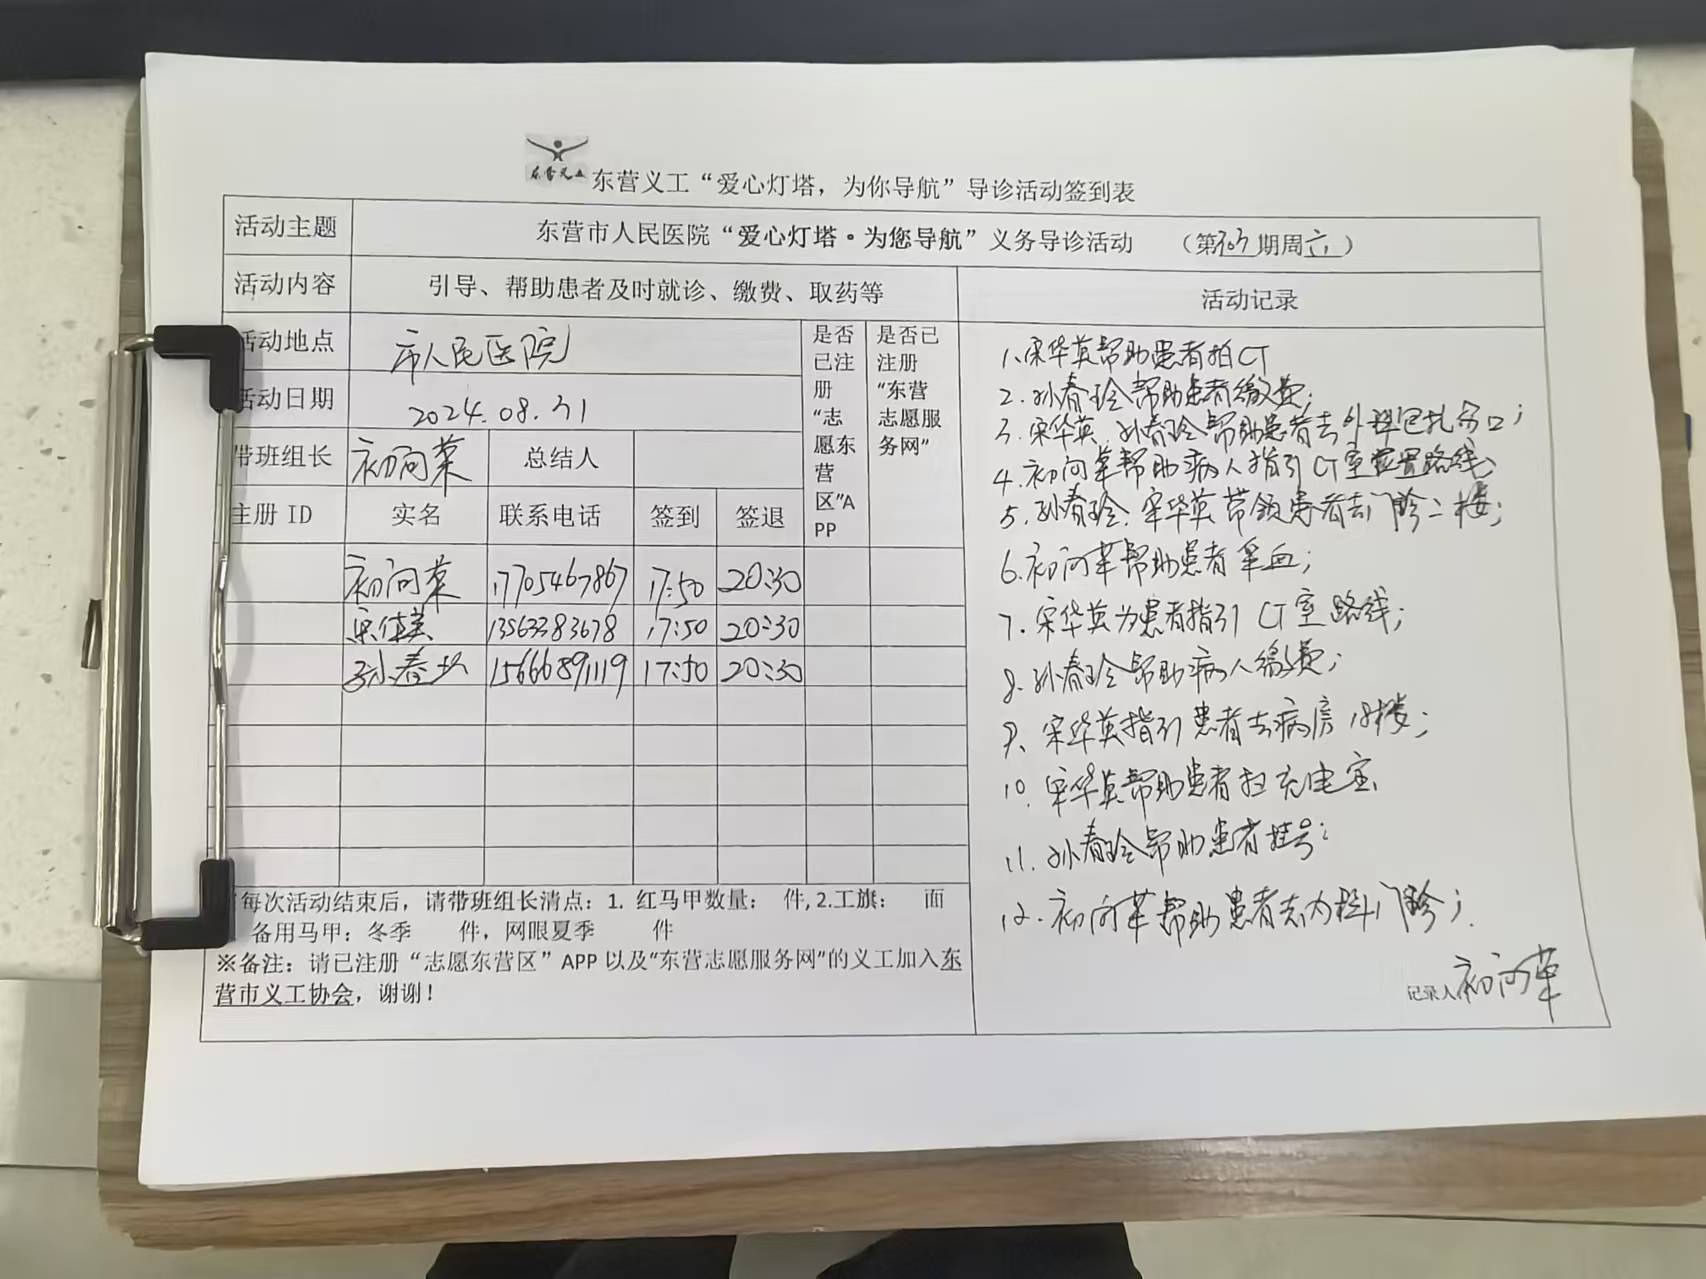 东营义工
东营义工“爱心灯塔，为你导航”导诊活动签到表
活动主题
东营市人民医院“爱心灯塔·为您导航”义务导诊活动 （第 期周六）
活动内容
引导、帮助患者及时就诊、缴费、取药等
活动记录
活动地点
市人民医院
活动日期
2024.08.31
带班组长
初向菜
总结人
是否已注册“志愿东营区”APP
是否已注册“东营志愿服务网”
注册 ID
实名
联系电话
签到
签退
初向菜 17705467867 17:50 20:30
宋华英 13563383678 17:50 20:30
孙春玲 15666891119 17:50 20:30
1、宋华英帮助患者拍CT
2. 孙春玲帮助患者缴费；
3. 宋华英、孙春玲帮助患者去外科包扎伤口；
4、初向菜帮助病人指引CT室位置路线；
5、孙春玲、宋华英带领患者去门诊二楼；
6、初向菜帮助患者采血；
7、宋华英为患者指引CT室路线；
8、孙春玲帮助病人缴费；
9、宋华英指引患者去病房18楼；
10、宋华英帮助患者扫充电宝
11、孙春玲帮助患者挂号；
12、初向菜帮助患者去内科门诊；
记录人 初向菜
每次活动结束后，请带班组长清点：1. 红马甲数量： 件,2.工旗： 面
备用马甲：冬季 件，网眼夏季 件
※备注：请已注册“志愿东营区”APP 以及“东营志愿服务网”的义工加入东
营市义工协会，谢谢！